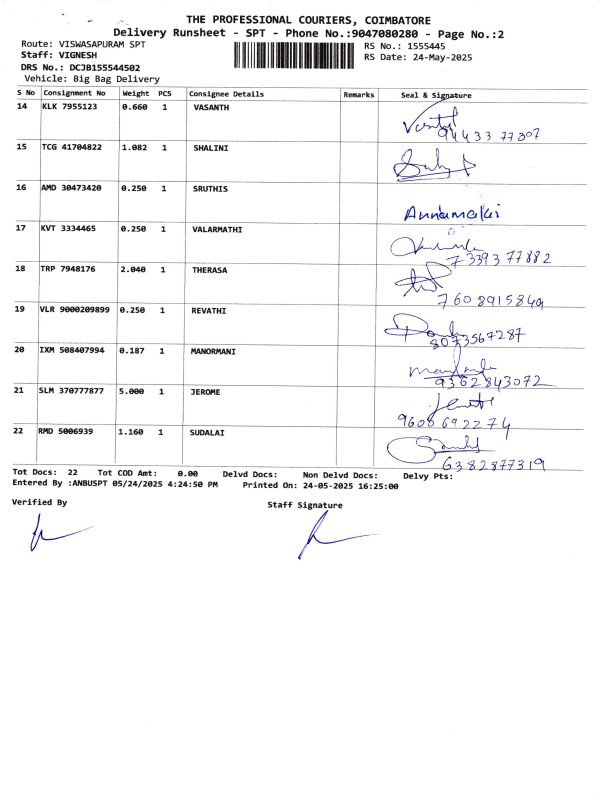 THE PROFESSIONAL COURIERS, COIMBATORE
Delivery Runsheet - SPT - Phone No.:9047080280 - Page No.:2
Route: VISWASAPURAM SPT
RS No.: 1555445
Staff: VIGNESH
RS Date: 24-May-2025
DRS No.: DCJB155544502
Vehicle: Big Bag Delivery
S No Consignment No Weight PCS Consignee Details Remarks Seal & Signature
14 KLK 7955123 0.660 1 VASANTH
94433 77307
15 TCG 41704822 1.082 1 SHALINI
16 AMD 30473420 0.250 1 SRUTHIS
Annamalai
17 KVT 3334465 0.250 1 VALARMATHI
7339377882
18 TRP 7948176 2.040 1 THERASA
7608915849
19 VLR 9000209899 0.250 1 REVATHI
8073567287
20 IXM 508407994 0.187 1 MANORMANI
9362843072
21 SLM 370777877 5.000 1 JEROME
9608692274
22 RMD 5006939 1.160 1 SUDALAI
6382877319
Tot Docs: 22 Tot COD Amt: 0.00 Delvd Docs: Non Delvd Docs: Delvy Pts:
Entered By :ANBUSPT 05/24/2025 4:24:50 PM Printed On: 24-05-2025 16:25:00
Verified By
Staff Signature